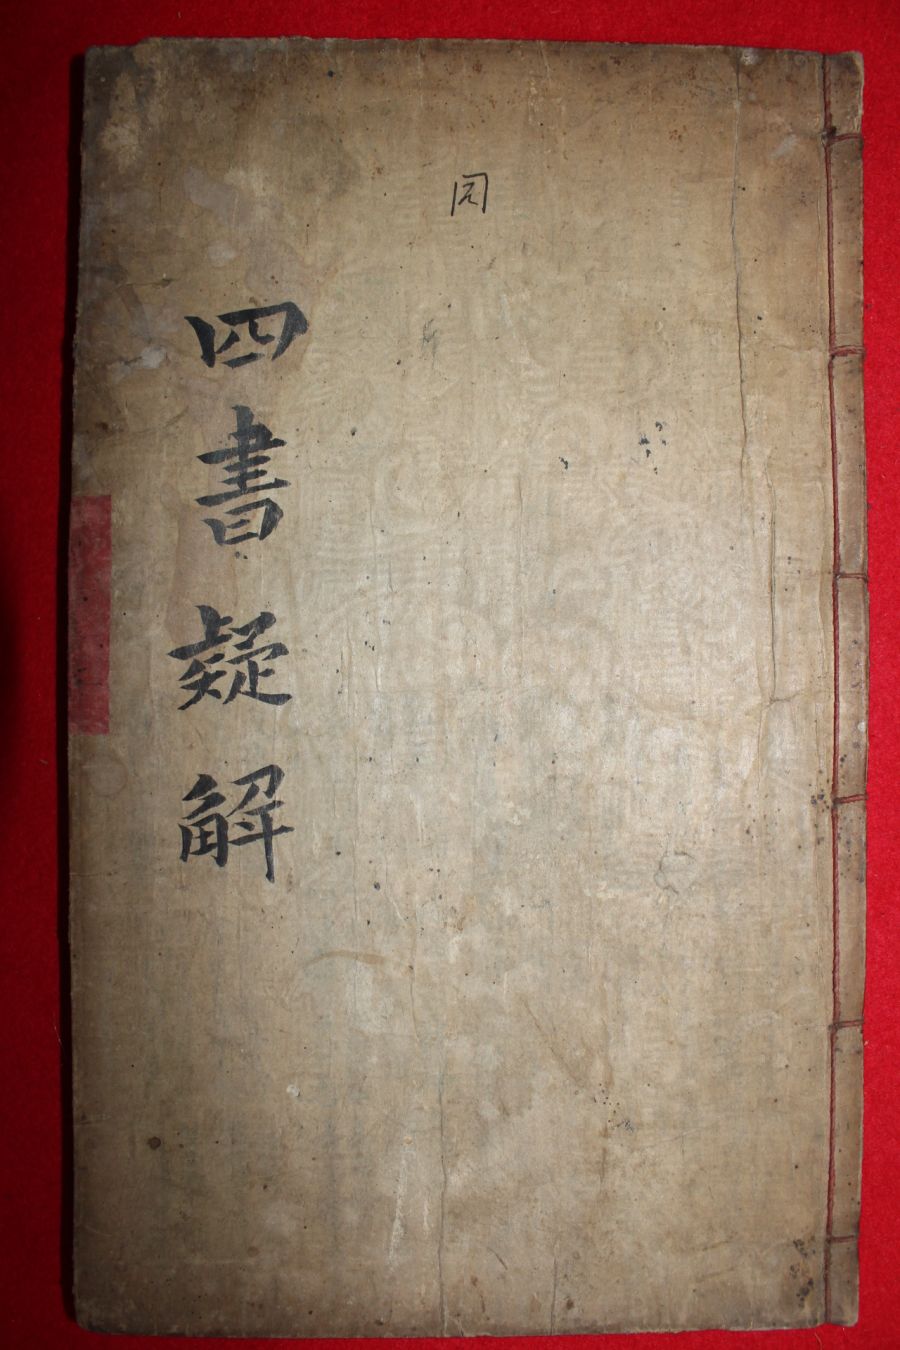 四書疑解